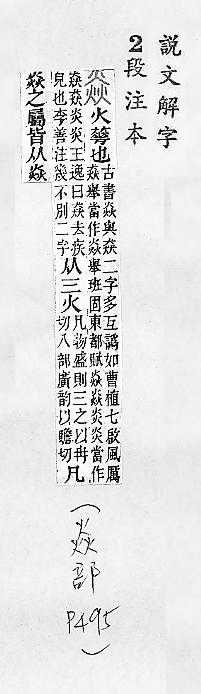 説文解字
2段注本
焱 火𠌶也
古書焱與猋二字多互譌如曹植七啟風厲
猋舉當作焱舉班固東都賦焱焱炎炎當作
猋猋炎炎王逸曰猋去疾
皃也李善注幾不別二字
从三火
凡物盛則三之以冄
切八部廣韵以贍切
凡
焱之屬皆从焱
(焱部 P495)